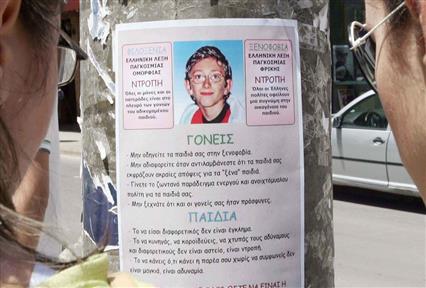 ΦΙΛΟΞΕΝΙΑ
ΕΛΛΗΝΙΚΗ ΛΕΞΗ
ΠΑΓΚΟΣΜΙΑΣ
ΟΜΟΡΦΙΑΣ
ΝΤΡΟΠΗ
Όλες οι μάνες και οι
πατεράδες είναι στο
πλευρό των γονιών
του αδικοχαμένου
παιδιού.
ΞΕΝΟΦΟΒΙΑ
ΕΛΛΗΝΙΚΗ ΛΕΞΗ
ΠΑΓΚΟΣΜΙΑΣ
ΦΡΙΚΗΣ
ΝΤΡΟΠΗ
Όλοι οι Έλληνες
πολίτες οφείλουν
μια συγνώμη στην
οικογένεια του
παιδιού.
ΓΟΝΕΙΣ
- Μην οδηγείτε τα παιδιά σας στην ξενοφοβία.
- Μην αδιαφορείτε όταν αντιλαμβάνεστε ότι τα παιδιά σας
εκφράζουν ακραίες απόψεις για τα "ξένα" παιδιά.
- Γίνετε το ζωντανό παράδειγμα ενεργού και ανοιχτόμυαλου
πολίτη για τα παιδιά σας.
- Μην ξεχνάτε ότι και οι γονείς σας ήταν πρόσφυγες.
ΠΑΙΔΙΑ
- Το να είσαι διαφορετικός δεν είναι έγκλημα.
- Το να κυνηγάς, να κοροϊδεύεις, να χτυπάς τους αδύναμους
και διαφορετικούς δεν είναι αστείο, είναι ντροπή.
- Το να κάνεις ό,τι κάνει η παρέα σου χωρίς να συμφωνείς δεν
είναι μαγκιά, είναι αδυναμία.
ΝΑ ΕΙΝΑΙ Η